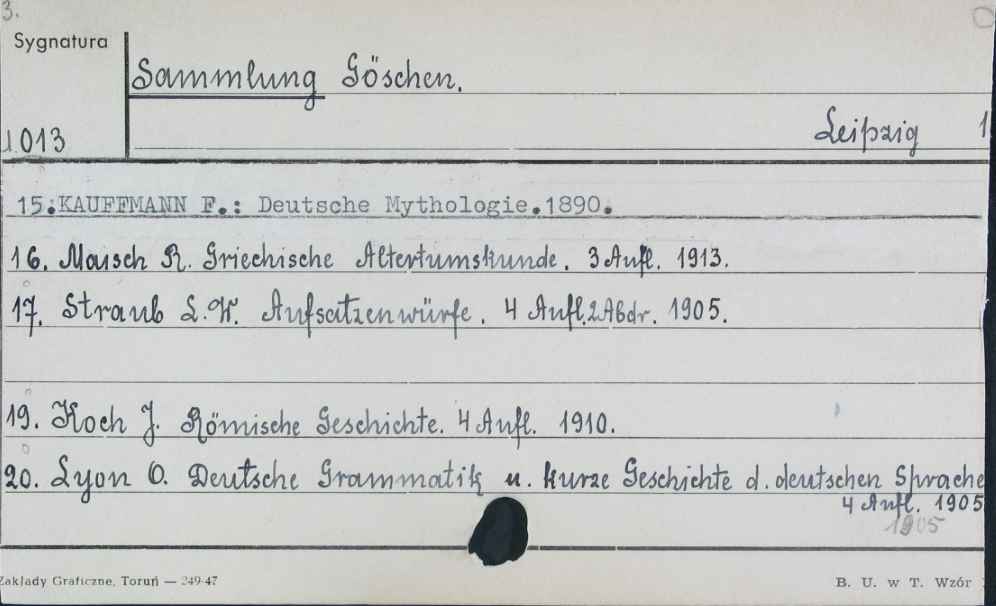 3.
Sygnatura
Sammlung Göschen.
013
Leipzig 1
15.KAUFFMANN F.: Deutsche Mythologie.1890.
16. Maisch R. Griechische Altertumskunde. 3 Aufl. 1913.
17. Straub L.W. Aufsatzenwürfe. 4 Aufl. 2 Abdr. 1905.
19. Koch J. Römische Geschichte. 4 Aufl. 1910.
20. Lyon O. Deutsche Grammatik u. kurze Geschichte d. deutschen Sprache
4 Aufl. 1905
1905
Zakłady Graficzne, Toruń — 249-47
B. U. w T. Wzór